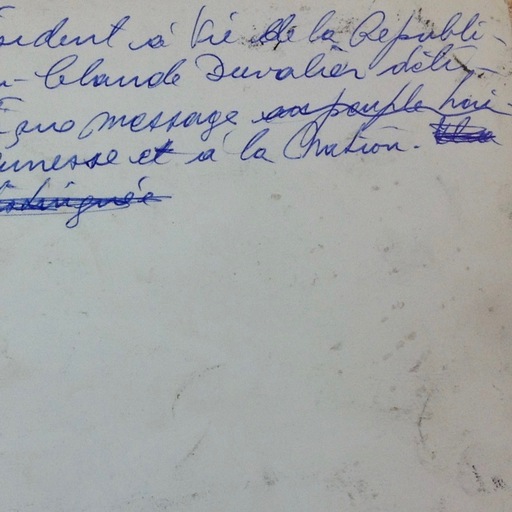 sident à Vie de la Républi-
n-Claude Duvalier déli-
message au peuple haï-
eunesse et à la Nation.